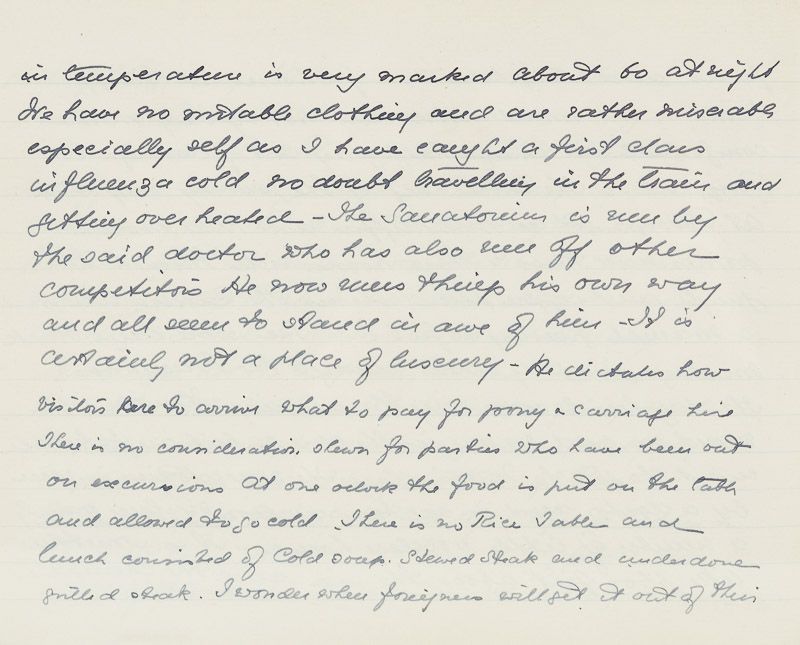 in temperature is very marked about 60 at night
We have no suitable clothing and are rather miserable
especially self as I have caught a first class
influenza cold no doubt travelling in the train and
getting over heated – The Sanatorium is run by
the said doctor who has also run off other
competitors He now runs things his own way
and all seem to stand in awe of him – It is
certainly not a place of luxury – He dictates how
visitors are to arrive what to pay for pony & carriage hire
There is no consideration shewn for parties who have been out
on excursions At one oclock the food is put on the table
and allowed to go cold. There is no Rice Table and
lunch consisted of Cold soup. Stewed Steak and underdone
grilled steak. I wonder when foreigners will get it out of their